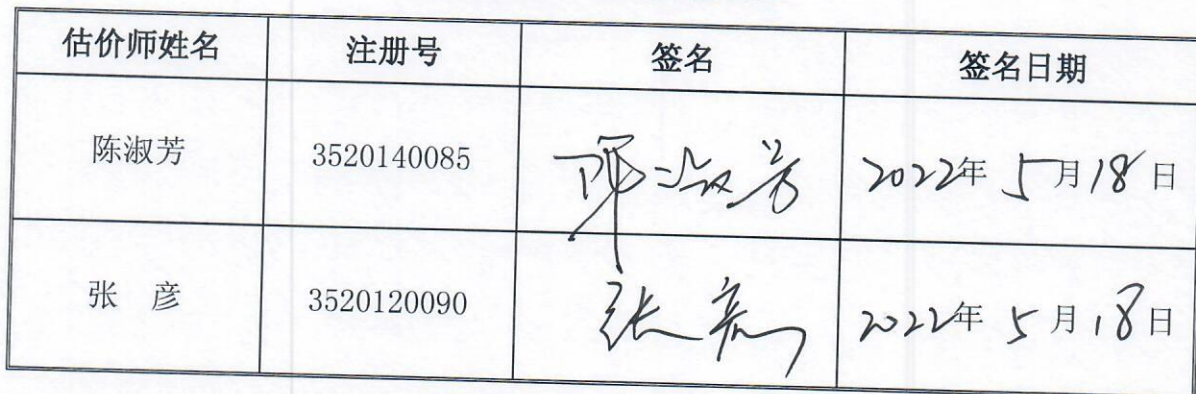 估价师姓名 注册号 签名 签名日期
陈淑芳 3520140085 陈淑芳 2022年 5月18日
张 彦 3520120090 张彦 2022年 5月18日